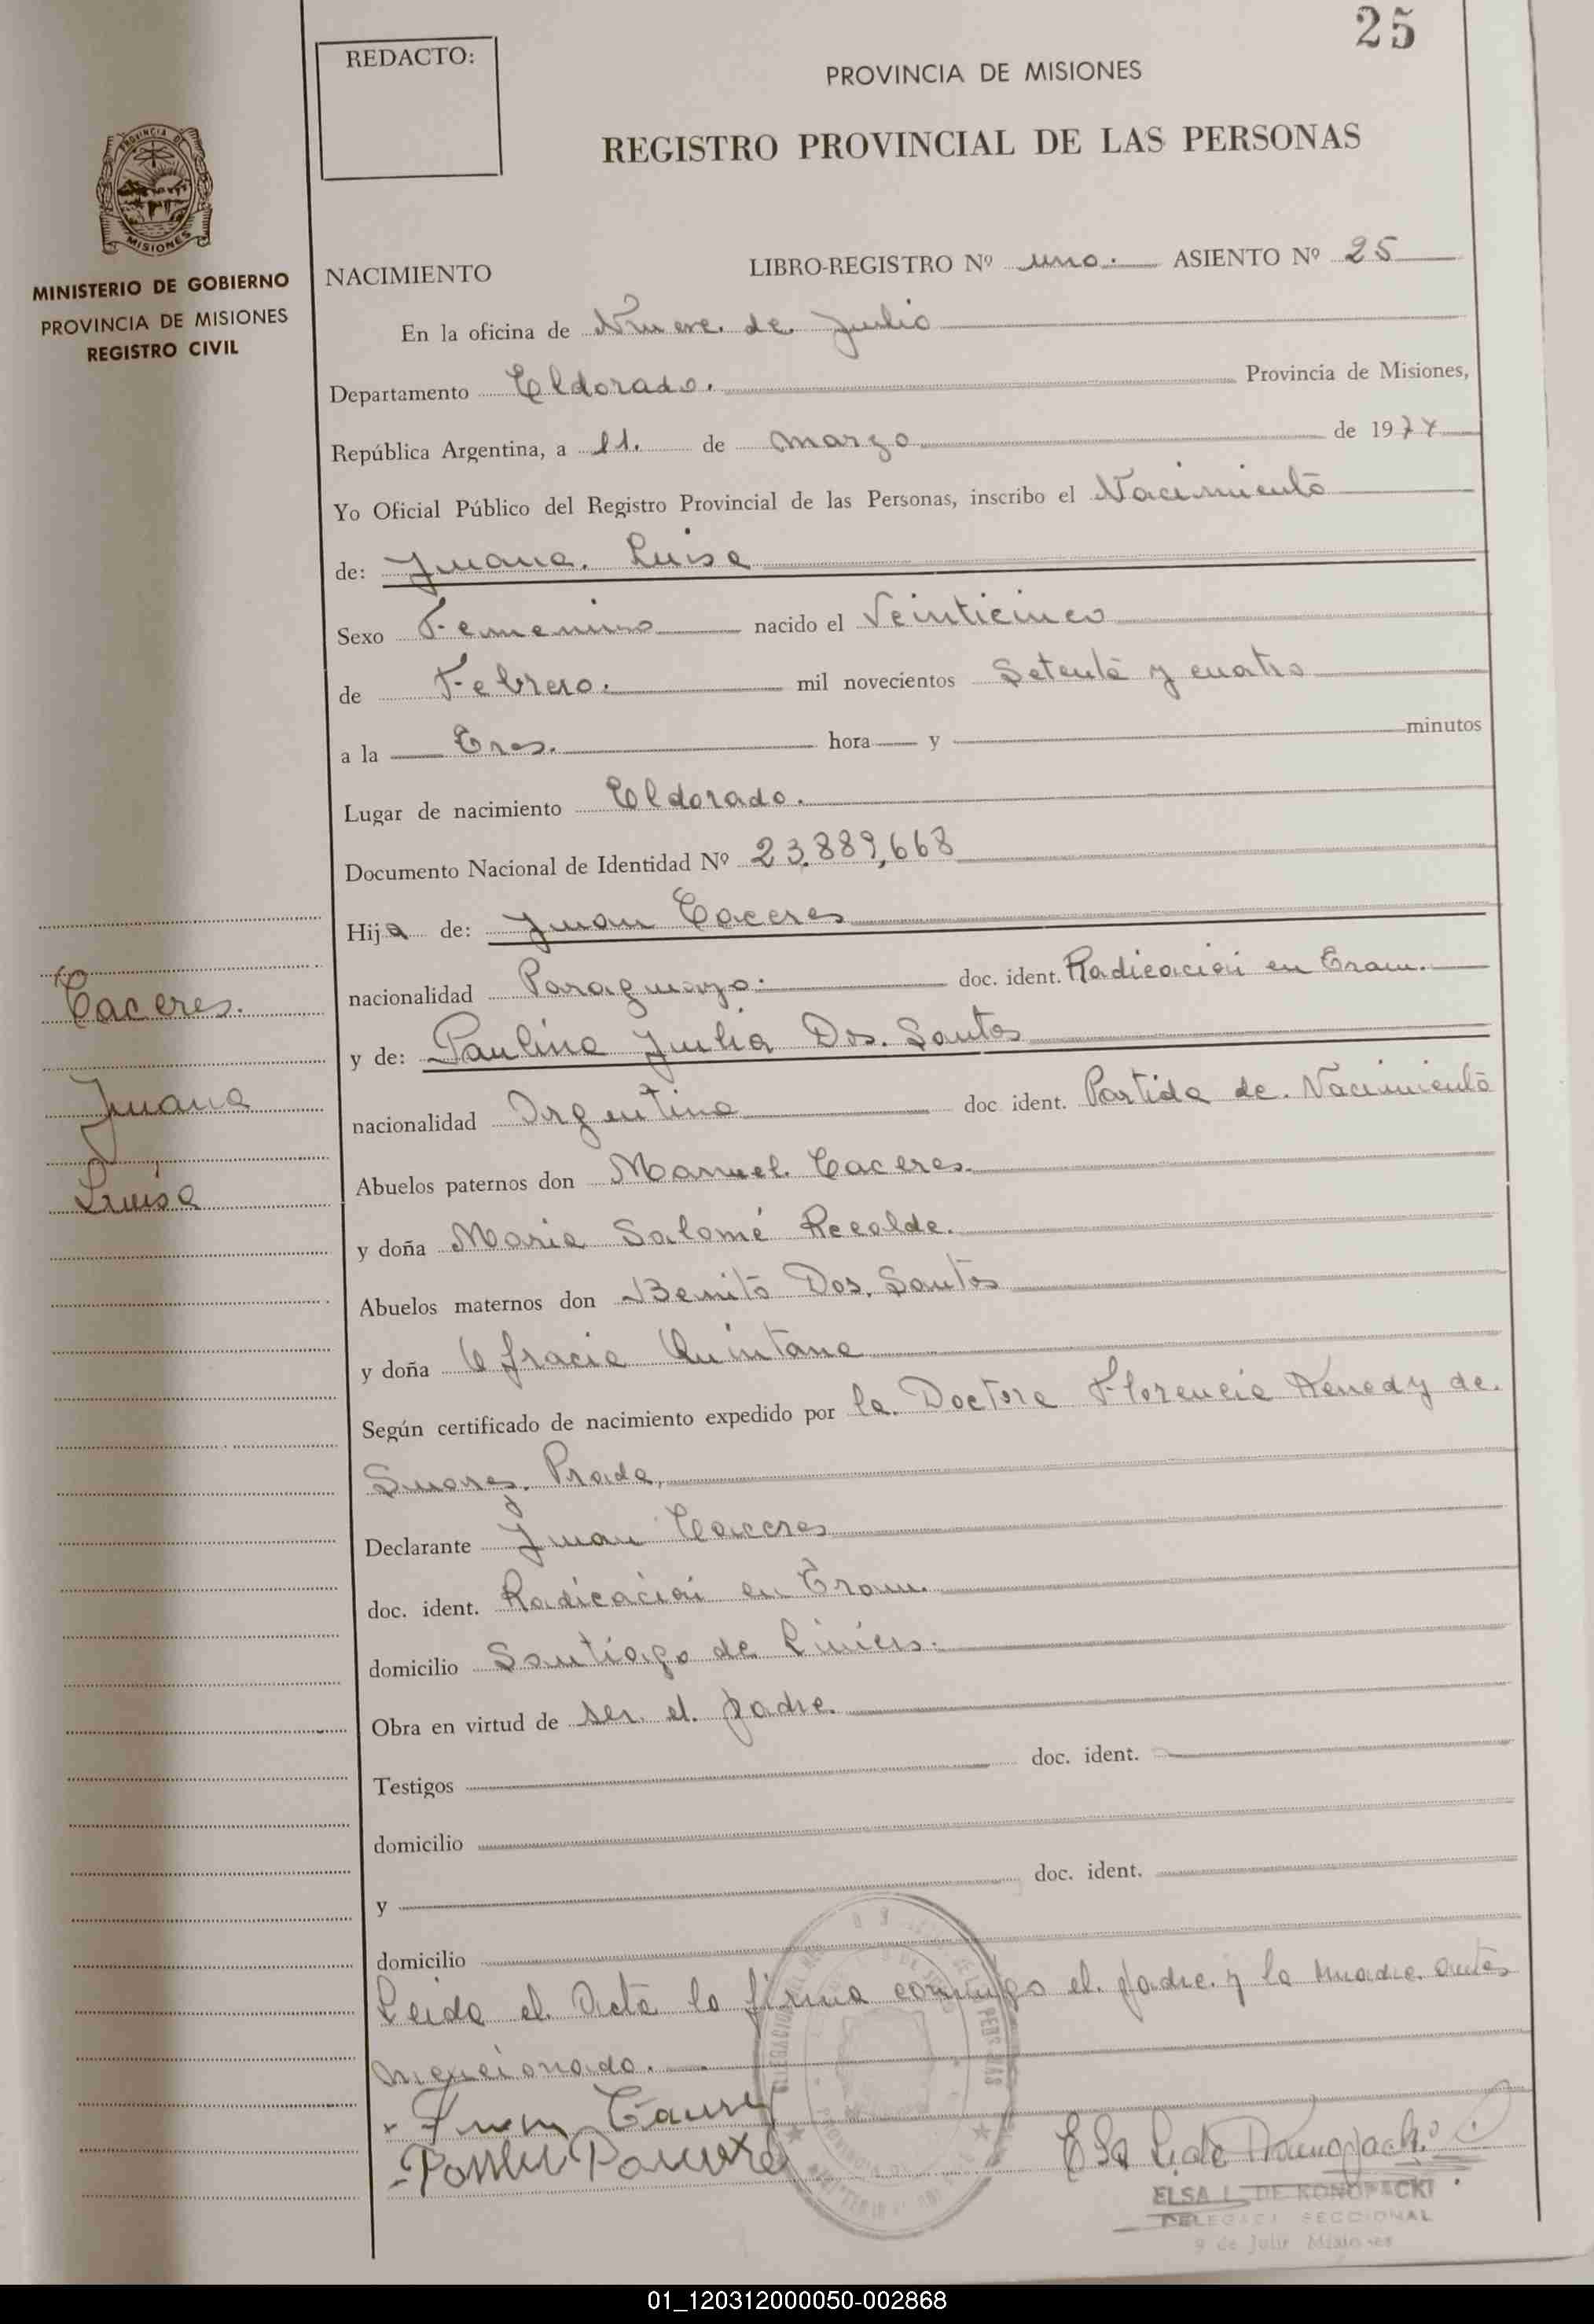 25
REDACTO:
PROVINCIA DE MISIONES
REGISTRO PROVINCIAL DE LAS PERSONAS
PROVINCIA DE
MISIONES
MINISTERIO DE GOBIERNO
PROVINCIA DE MISIONES
REGISTRO CIVIL
NACIMIENTO LIBRO-REGISTRO Nº uno. ASIENTO Nº 25
En la oficina de Nueve de Julio
Departamento Eldorado. Provincia de Misiones,
República Argentina, a 11. de marzo de 1974
Yo Oficial Público del Registro Provincial de las Personas, inscribo el Nacimiento
de: Juana Luisa
Sexo Femenino nacido el Veinticinco
de Febrero. mil novecientos Setenta y cuatro
a la Tres. hora y minutos
Lugar de nacimiento Eldorado.
Documento Nacional de Identidad Nº 23.889,668
Hija de: Juan Caceres
nacionalidad Paraguayo. doc. ident. Radicación en Tram.
y de: Paulina Julia Dos. Santos
nacionalidad Argentina doc ident. Partida de Nacimiento
Abuelos paternos don Manuel Caceres.
y doña Maria Salomé Recalde.
Abuelos maternos don Benito Dos. Santos
y doña Efracia Quintana
Según certificado de nacimiento expedido por la Doctora Florencia Kenedy de.
Suarez Prada,
Declarante Juan Caceres
doc. ident. Radicación en Tram.
domicilio Santiago de Liniers.
Obra en virtud de ser el padre.
Testigos doc. ident.
domicilio
y doc. ident.
domicilio
Leida el Acta la firma conmigo el padre y la madre antes
mencionado.
Caceres.
Juana
Luisa
Juan
ELSA L. DE KONOPACKI
DELEGADA SECCIONAL
9 de Julio Misiones
01_120312000050-002868